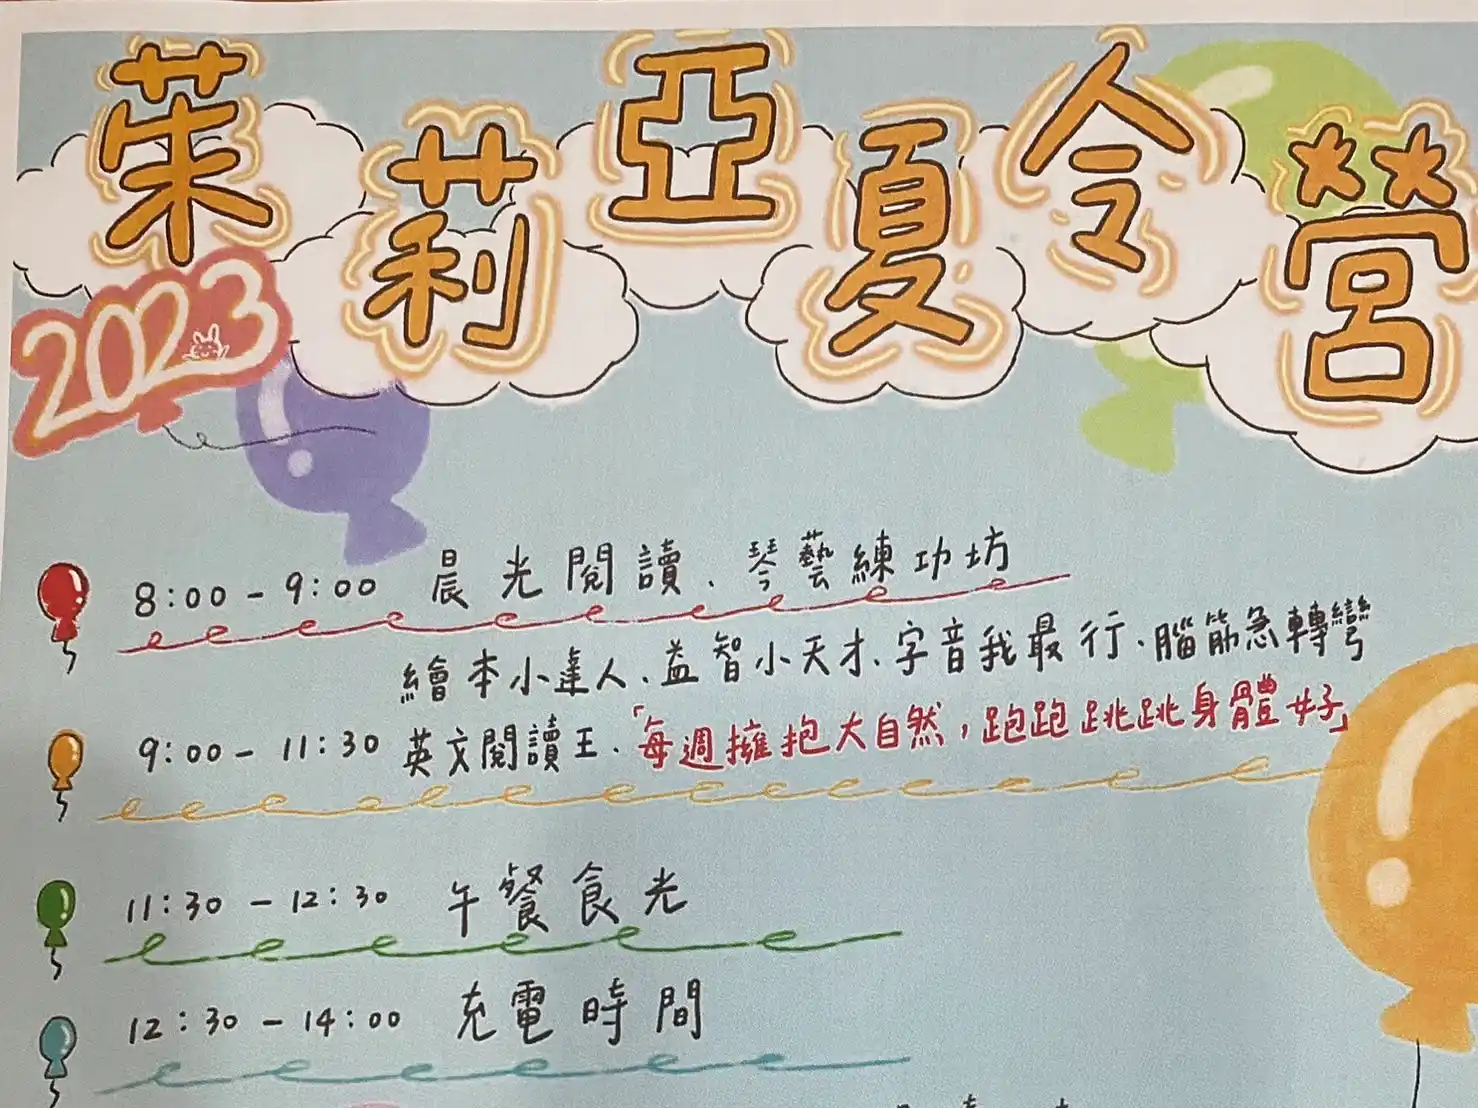 茱莉亞夏令營
2023
8:00-9:00 晨光閱讀、琴藝練功坊
繪本小達人、益智小天才、字音我最行、腦筋急轉彎
9:00-11:30 英文閱讀王、「每週擁抱大自然,跑跑跳跳身體好」
11:30-12:30 午餐食光
12:30-14:00 充電時間